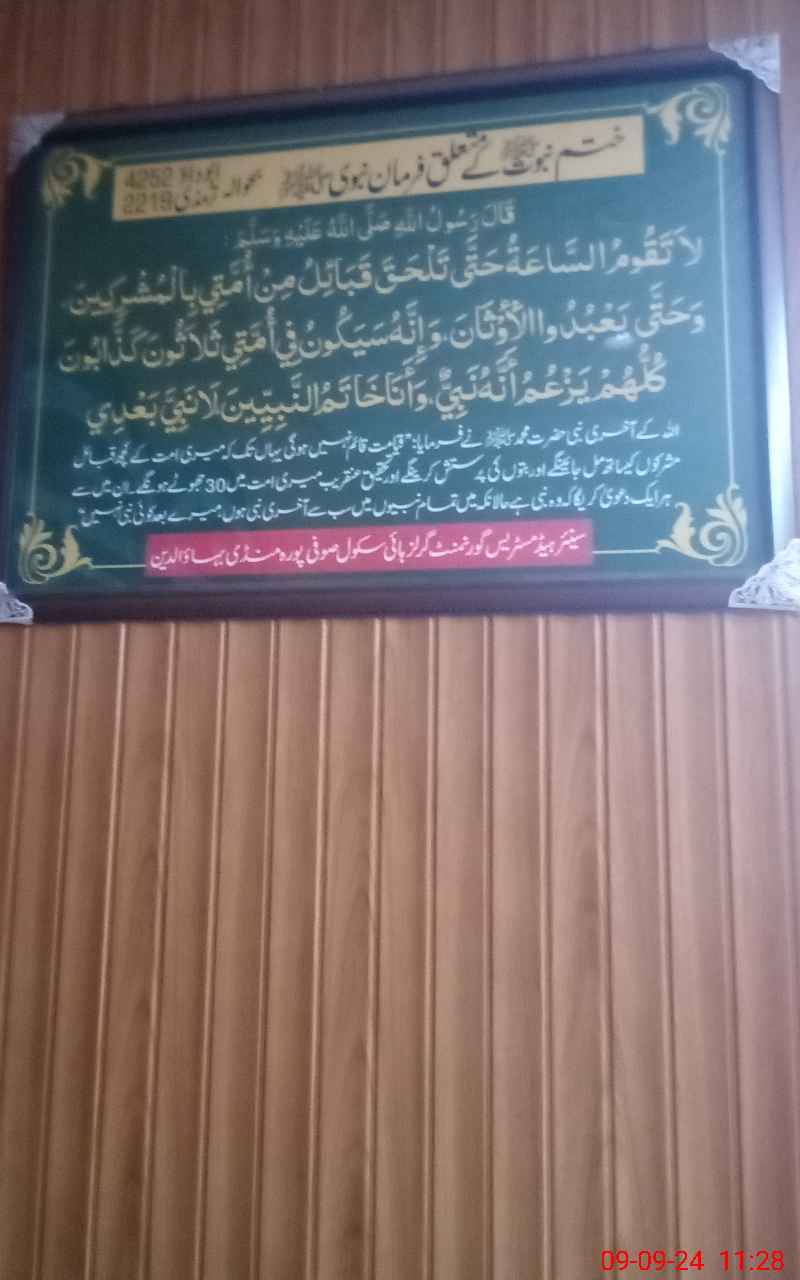 ختم نبوت ﷺ کے متعلق فرمان نبوی ﷺ بحوالہ ابوداؤد 4252 ترمذی 2219
قَالَ رَسُولُ اللهِ صَلَّى اللهُ عَلَيْهِ وَسَلَّمَ :
لَا تَقُومُ السَّاعَةُ حَتَّى تَلْحَقَ قَبَائِلُ مِنْ أُمَّتِي بِالْمُشْرِكِينَ
وَحَتَّى يَعْبُدُوا الْأَوْثَانَ، وَإِنَّهُ سَيَكُونُ فِي أُمَّتِي ثَلَاثُونَ كَذَّابُونَ
كُلُّهُمْ يَزْعُمُ أَنَّهُ نَبِيٌّ، وَأَنَا خَاتَمُ النَّبِيِّينَ لَا نَبِيَّ بَعْدِي
اللہ کے آخری نبی حضرت محمد ﷺ نے فرمایا: "قیامت قائم نہیں ہوگی یہاں تک کہ میری امت کے کچھ قبائل
مشرکوں کیساتھ مل جائینگے اور بتوں کی پرستش کرینگے اور تحقیق عنقریب میری امت میں 30 جھوٹے ہونگے۔ ان میں سے
ہر ایک دعویٰ کریگا کہ وہ نبی ہے حالانکہ میں تمام نبیوں میں سب سے آخری نبی ہوں، میرے بعد کوئی نبی نہیں"
سینئر ہیڈ مسٹریس گورنمنٹ گرلز ہائی سکول صوفی پورہ منڈی بہاؤالدین
09-09-24 11:28